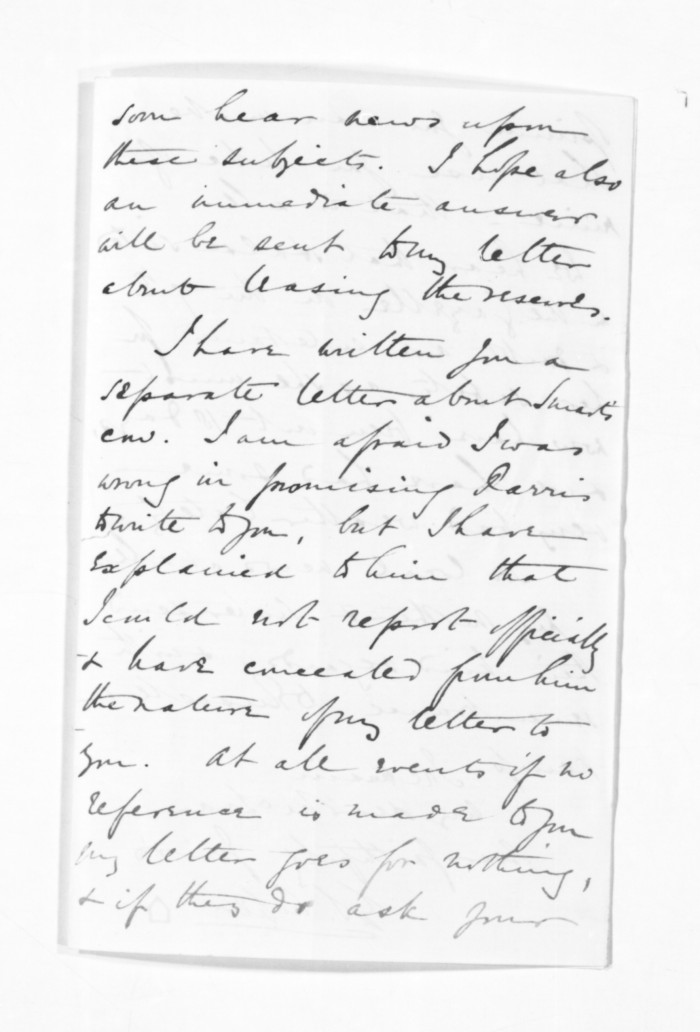 soon hear news upon
these subjects. I hope also
an immediate answer
will be sent to my letter
about leasing the reserves.
I have written you a
separate letter about Smart's
case. I am afraid I was
wrong in promising Parris
to write to you, but I have
explained to him that
I could not report officially
& have concealed from him
the nature of my letter to
you. At all events if no
reference is made to you
my letter goes for nothing,
& if they do ask your